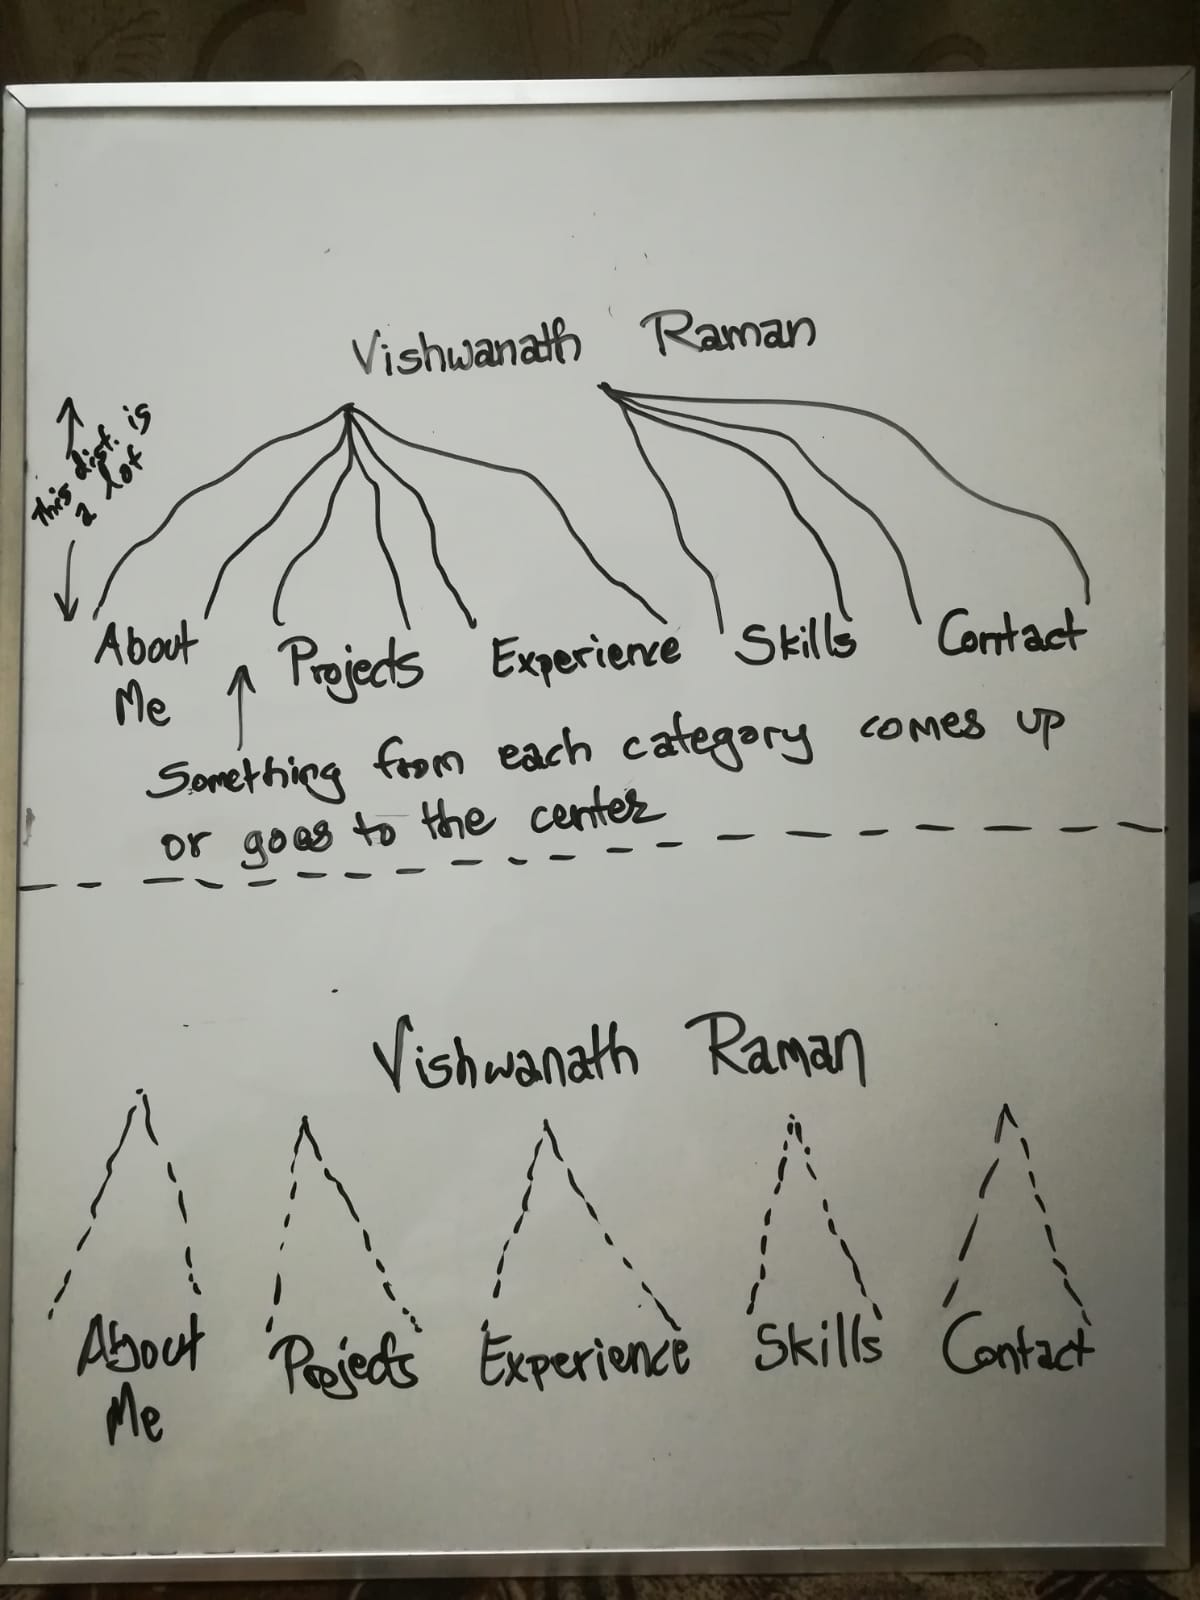 Vishwanath Raman
This dist. is
a lot
About Projects Experience Skills Contact
Me
Something from each category comes up
or goes to the center
Vishwanath Raman
About Projects Experience Skills Contact
Me